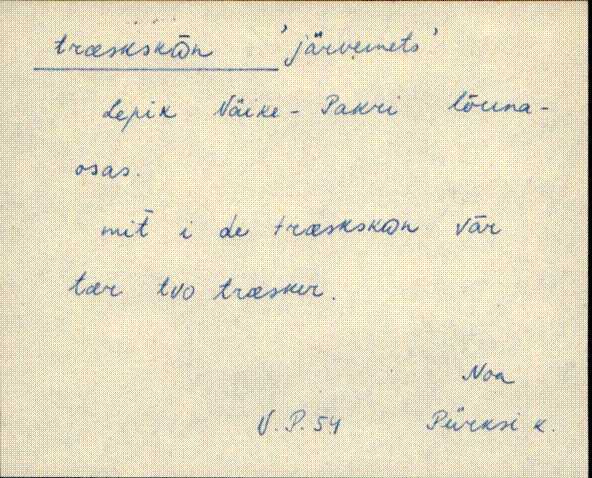 træskskɷn 'järvemets'
Lepik Väike-Pakri lõuna-
osas.
mit i de træskskɷn vār
tær tvo træsker.
Noa
V.P. 54 Pürksi k.